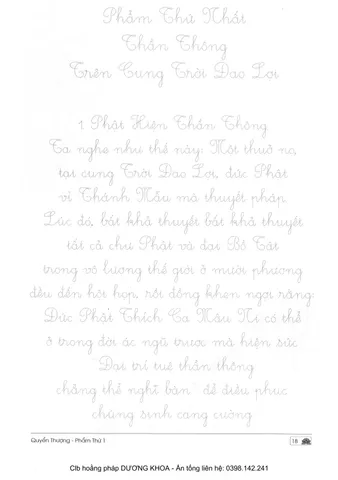 Phẩm Thứ Nhất
Thần Thông
Trên Cung Trời Đao Lợi
1. Phật Hiện Thần Thông
Ta nghe như thế này: Một thuở nọ,
tại cung Trời Đao Lợi, đức Phật
vì Thánh Mẫu mà thuyết pháp.
Lúc đó, bất khả thuyết bất khả thuyết
tất cả chư Phật và đại Bồ Tát
trong vô lượng thế giới ở mười phương
đều đến hội họp, rồi đồng khen ngợi rằng:
Đức Phật Thích Ca Mâu Ni có thể
ở trong đời ác ngũ trược mà hiện sức
Đại trí tuệ thần thông
chẳng thể nghĩ bàn để điều phục
chúng sinh cang cường
Quyển Thượng - Phẩm Thứ 1
18
Clb hoằng pháp DƯƠNG KHOA - Ấn tống liên hệ: 0398.142.241